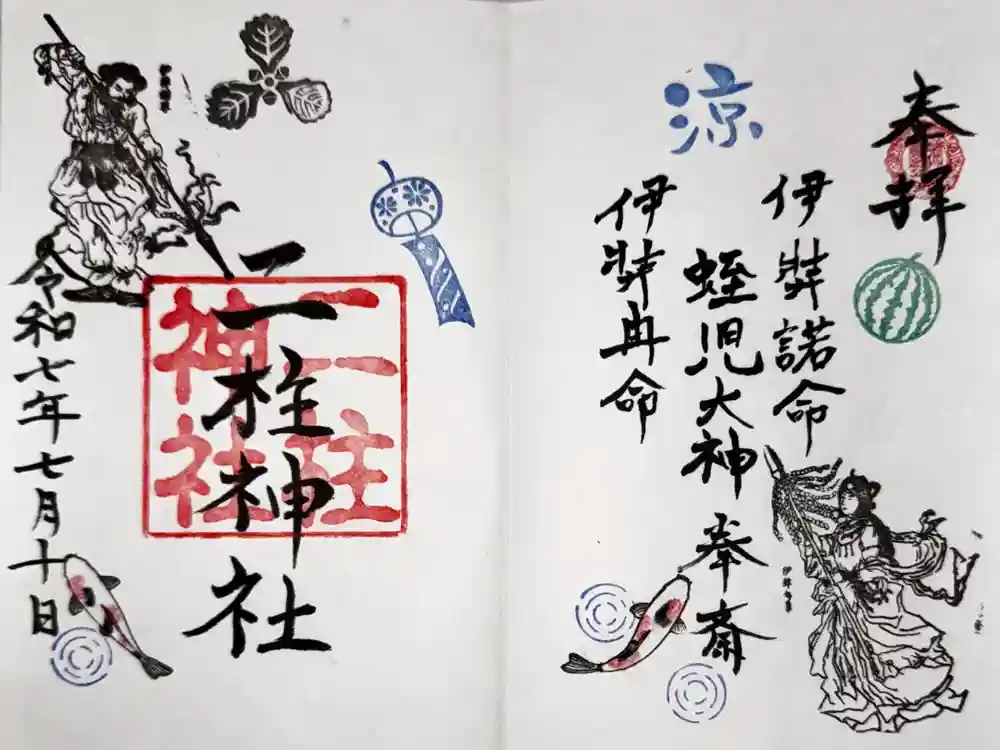 奉拝
伊弉諾命
蛭児大神 奉斎
伊弉冉命
涼
二柱神社
二柱
神社
令和七年七月十日